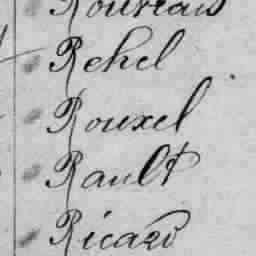 Rouxel
Rehel
Rouxel
Rault
Ricard